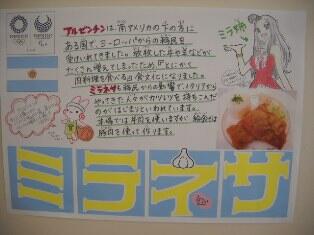 アルゼンチンは南アメリカの下の方に
ある国で、ヨーロッパからの移民を
受けいれてきました。放牧した牛や羊などが
たくさん増えてしまったため「とにかく
肉料理を食べる」食文化になりました。
ミラネサも移民からの影響でイタリアから
やってきた人々がカツレツを持ちこんだ
のがはじまりといわれています。
本場では牛肉を使いますが、給食では
豚肉を使って作ります。
ミラネサ